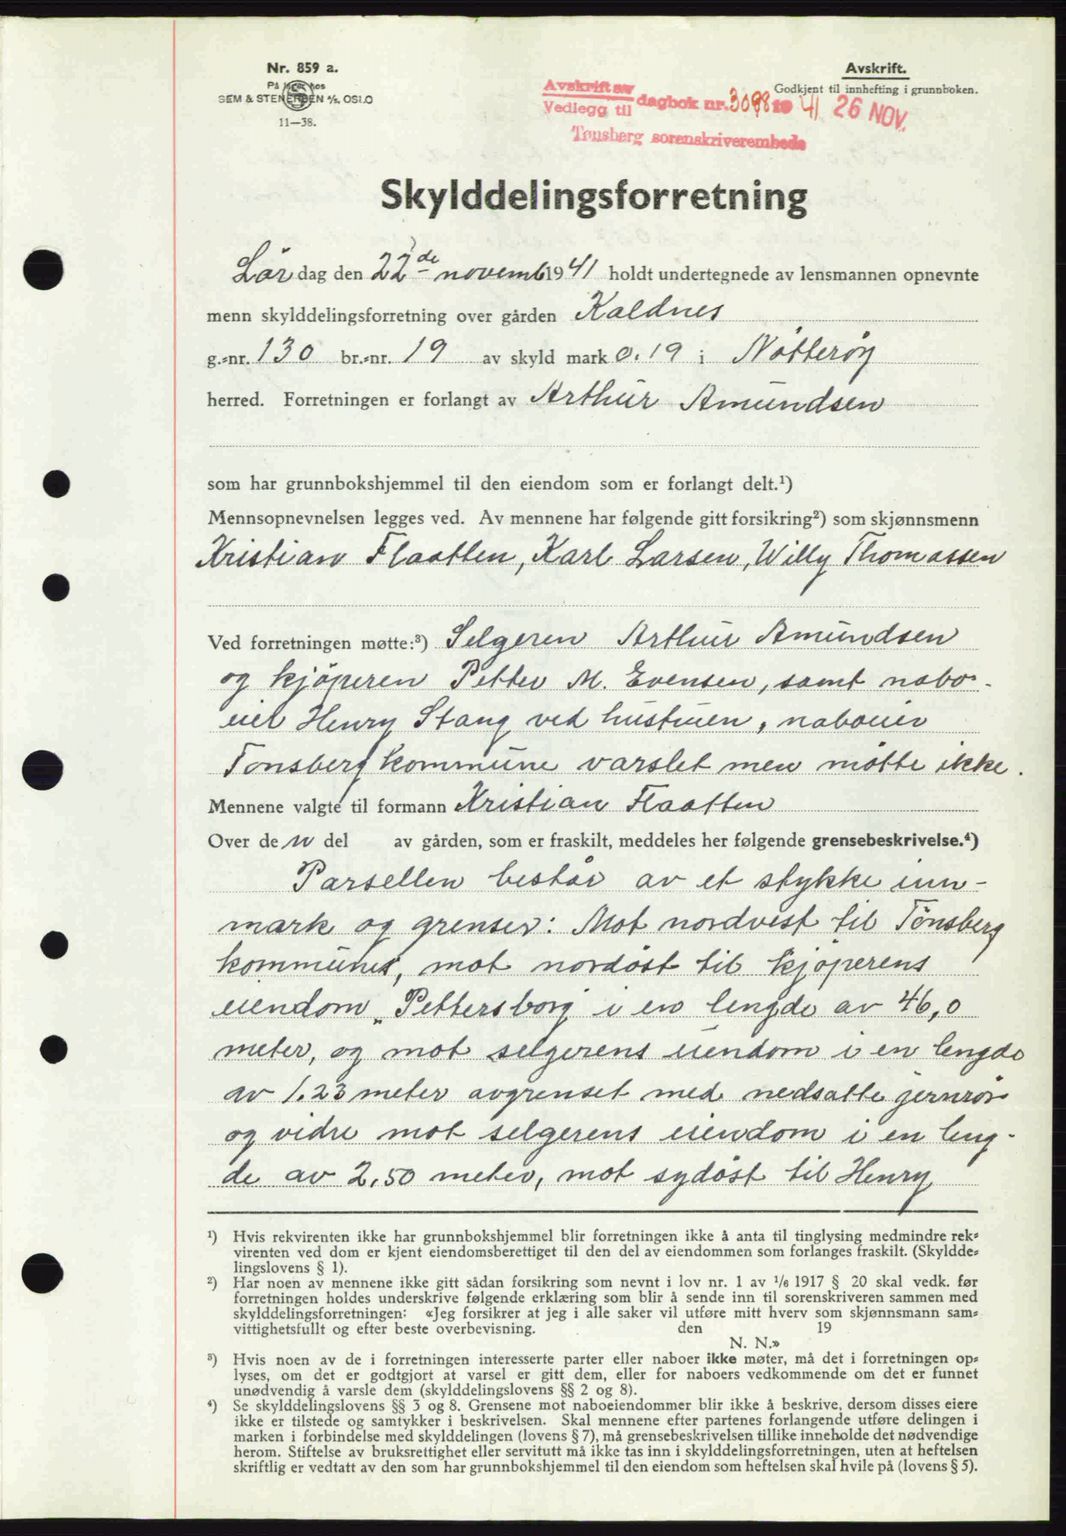 Nr. 859 a.
På lager hos
SEM & STENERSEN A/S, OSLO
11—38.
Avskrift.
Godkjent til innhefting i grunnboken.
Avskrift av
Vedlegg til
dagbok nr. 3098 19 41 26 NOV.
Tønsberg sorenskriverembede
Skylddelingsforretning
Lördag den 22de novemb 1941 holdt undertegnede av lensmannen opnevnte
menn skylddelingsforretning over gården Kaldnes
g.-nr. 130 br.-nr. 19 av skyld mark 0.19 i Nötteröy
herred. Forretningen er forlangt av Arthur Amundsen
som har grunnbokshjemmel til den eiendom som er forlangt delt.¹)
Mennsopnevnelsen legges ved. Av mennene har følgende gitt forsikring²) som skjønnsmenn
Kristian Flaatten, Karl Larsen, Willy Thomassen
Ved forretningen møtte:³) Selgeren Arthur Amundsen
og kjöperen Petter M. Evensen, samt nabo-
eier Henry Stang ved hustruen, naboeier
Tönsberg kommune varslet men mötte ikke.
Mennene valgte til formann Kristian Flaatten
Over den del av gården, som er fraskilt, meddeles her følgende grensebeskrivelse.⁴)
Parsellen består av et stykke inn-
mark og grenser: Mot nordvest til Tönsberg
kommunes, mot nordöst til kjöperens
eiendom „Pettersborg" i en lengde av 46,0
meter, og mot selgerens eiendom i en lengde
av 1.23 meter avgrenset med nedsatte jernrör
og vidre mot selgerens eiendom i en leng-
de av 2,50 meter, mot sydöst til Henry
¹) Hvis rekvirenten ikke har grunnbokshjemmel blir forretningen ikke å anta til tinglysing medmindre rek-
virenten ved dom er kjent eiendomsberettiget til den del av eiendommen som forlanges fraskilt. (Skyldde-
lingslovens § 1).
²) Har noen av mennene ikke gitt sådan forsikring som nevnt i lov nr. 1 av 1/6 1917 § 20 skal vedk. før
forretningen holdes underskrive følgende erklæring som blir å sende inn til sorenskriveren sammen med
skylddelingsforretningen: «Jeg forsikrer at jeg i alle saker vil utføre mitt hverv som skjønnsmann sam-
vittighetsfullt og efter beste overbevisning. den 19
N. N.»
³) Hvis noen av de i forretningen interesserte parter eller naboer ikke møter, må det i forretningen op-
lyses, om det er godtgjort at varsel er gitt dem, eller for naboers vedkommende om det er funnet
unødvendig å varsle dem (skylddelingslovens §§ 2 og 8).
⁴) Se skylddelingslovens §§ 3 og 8. Grensene mot naboeiendommer blir ikke å beskrive, dersom disses eiere
ikke er tilstede og samtykker i beskrivelsen. Skal mennene efter partenes forlangende utføre delingen i
marken i forbindelse med skylddelingen (lovens § 7), må grensebeskrivelsen tillike inneholde det nødvendige
herom. Stiftelse av bruksrettighet eller servitutt må ikke tas inn i skylddelingsforretningen, uten at heftelsen
skriftlig er vedtatt av den som har grunnbokshjemmel til den eiendom som heftelsen skal hvile på (lovens § 5).